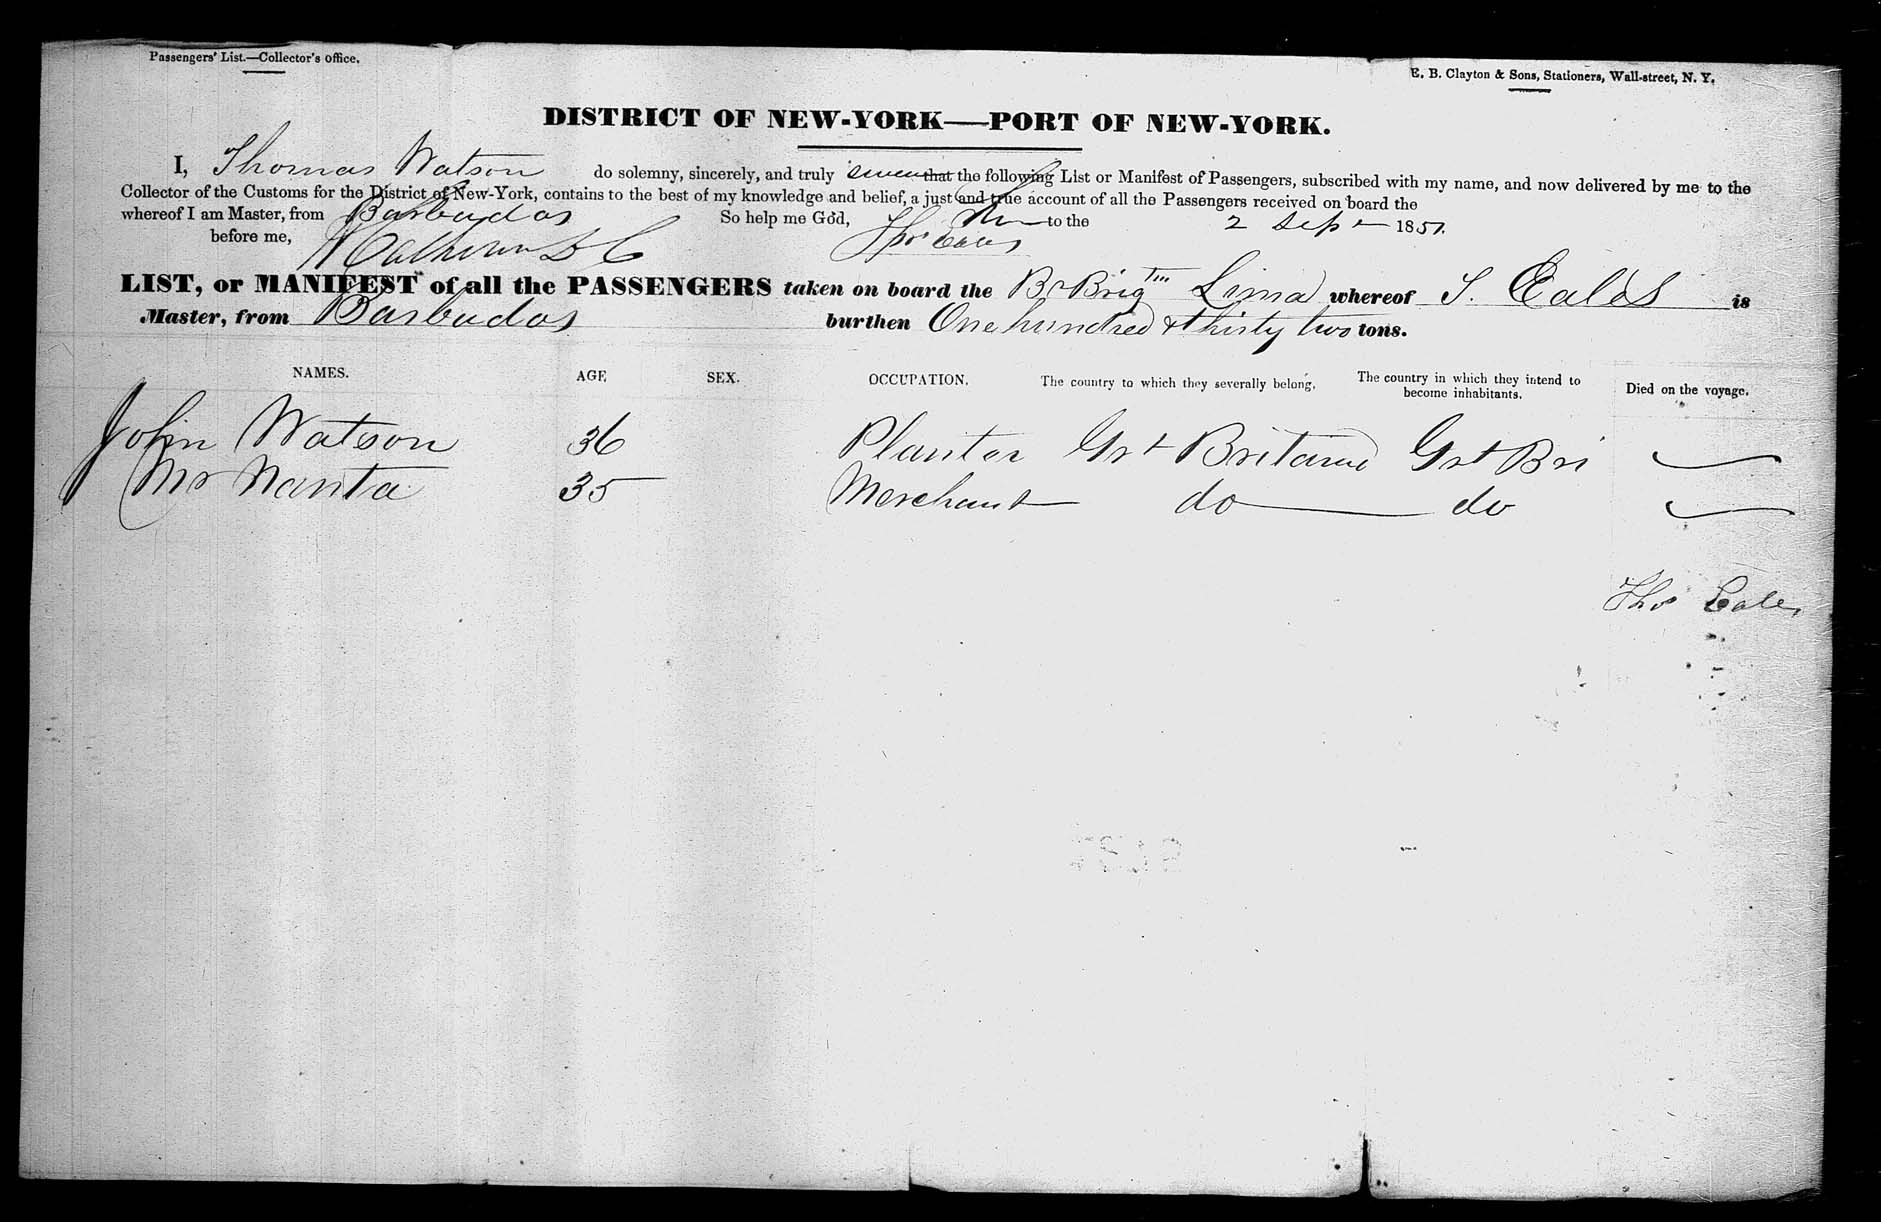 Passengers' List.—Collector's office.
E. B. Clayton & Sons, Stationers, Wall-street, N. Y.
DISTRICT OF NEW-YORK—PORT OF NEW-YORK.
I, Thomas Watson do solemny, sincerely, and truly swear that the following List or Manifest of Passengers, subscribed with my name, and now delivered by me to the
Collector of the Customs for the District of New-York, contains to the best of my knowledge and belief, a just and true account of all the Passengers received on board the
whereof I am Master, from Barbados So help me God, to the 2 Sep 1851.
before me, Thos Eales
LIST, or MANIFEST of all the PASSENGERS taken on board the Br Brig Lima whereof T. Eales is
Master, from Barbados burthen One hundred & thirty two tons.
NAMES. AGE SEX. OCCUPATION. The country to which they severally belong. The country in which they intend to become inhabitants. Died on the voyage.
John Watson 36 Planter Grt Britain Grt Bri
Mr Nanta 35 Merchant do do
Thos Eales